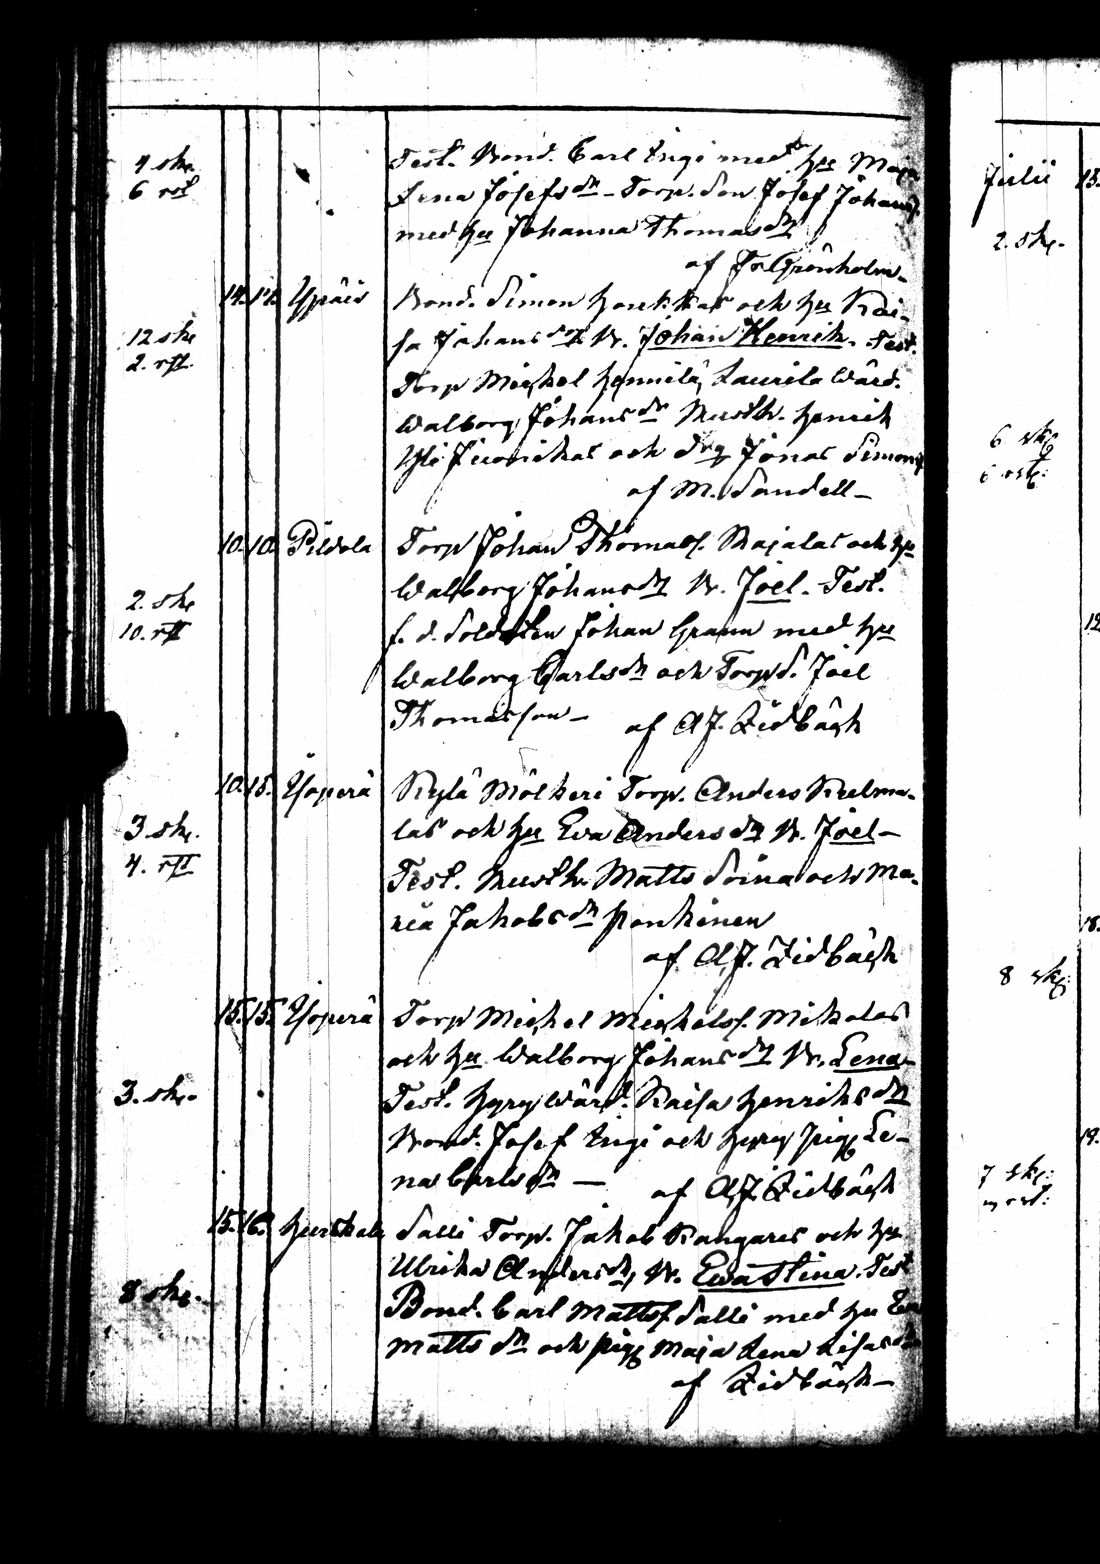 4 sk.
6 rst
Test. Bond. Carl Ingi med hu Maja
Lena Josefs dr - Torp. Son Josef Johans
med hu Johanna Thomas dr
af Grönholm.
14. 17. Ypäis
Bond. Simon och hu Kai-
12 sk
2. rst.
sa Johans dr B. Johan Henrik. Test.
Torp Michel Laurila Wärd.
Walborg Johans dr Husth. Henrik
och drg Jonas Simons
af M. Sandell -
10. 10. Pildola
Torp Johan Thomass. Rajalas och hu
Walborg Johans dr B. Joel. Test.
2. sk
10. rst
f. d. Soldaten Johan Grann med hu
Walborg Carls dr och Torp S. Joel
Thomasson -
af A J. Lidbäck
10. 15. Yöperä
Kylä Mölkeri Torp. Anders
las och hu Eva Anders dr B. Joel -
3 sk.
4. rst
Test. Husth. Matts Soina och Ma-
ria Jakobs dr Ponkinen
af A. J. Lidbäck
15. 15. Yöperä
Torp Michel Michelss. Mikolas
och hu Walborg Johans dr B. Lena -
3. sk.
Test. Hyry Wärd. Kaisa Henriks dr
Bond. Josef Ingi och Hyry pig. Le-
na Carls dr —
af A J. Lidbäck
15. 16.
Salli Torp. Jakob Kangares och hu
Ulrika Anders dr, B. Ewa Stina. Test
8 sk.
Bond. Carl Mattss Salli med hu
Matts dr och pig Maja Lena
af Lidbäck -
Julii 13.
2. sk.
6 sk
6 rst.
12
18.
8 sk.
19.
7 sk.